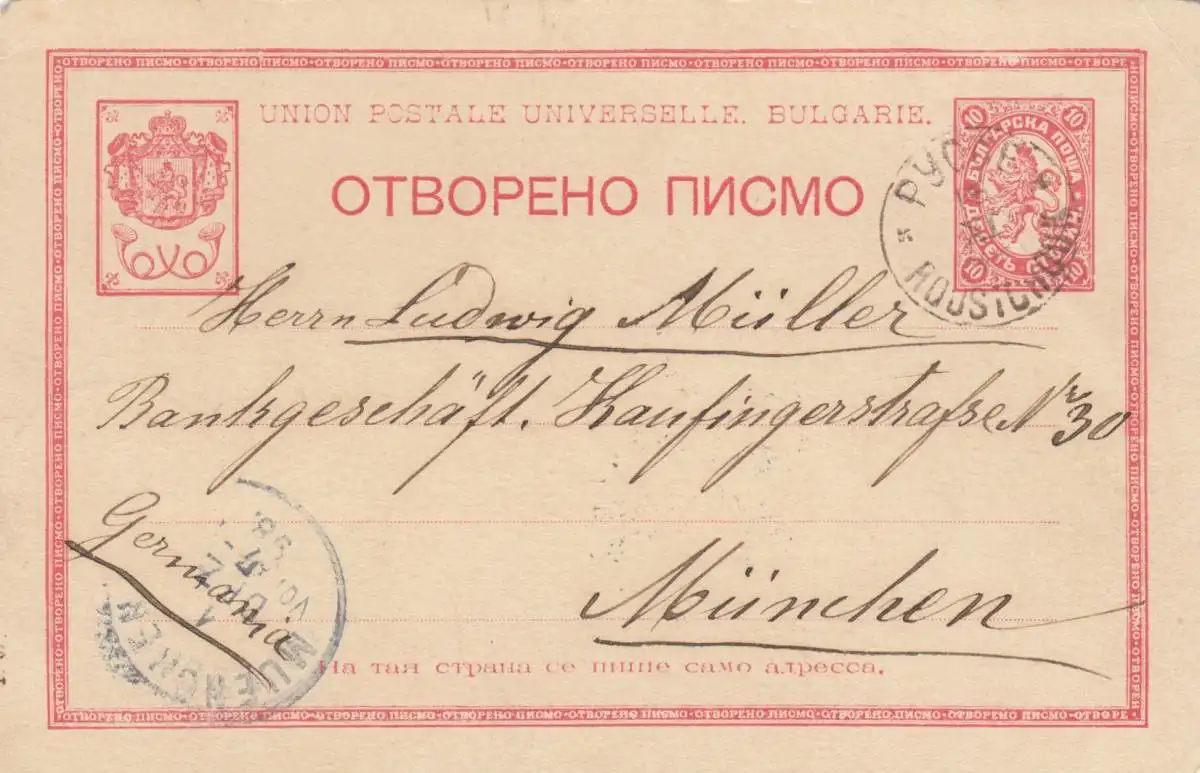 ОТВОРЕНО ПИСМО-ОТВОРЕНО ПИСМО-ОТВОРЕНО ПИСМО-ОТВОРЕНО ПИСМО-ОТВОРЕНО ПИСМО-ОТВОРЕНО ПИСМО-ОТВОРЕНО ПИСМО-ОТВОРЕНО ПИСМО-ОТВОРЕ
UNION POSTALE UNIVERSELLE. BULGARIE.
10 10
БЪЛГАРСКА ПОЩА
ДЕСЕТЬ
10 10
ROUSTCHOUK
ОТВОРЕНО ПИСМО
Herrn Ludwig Müller
Bankgeschäft. Kaufingerstrasse Nr 30
Germania
München
MUENCHEN
1
DEZ
98.
На тая страна се пише само адресса.
ОТВОРЕНО ПИСМО-ОТВОРЕНО ПИСМО-ОТВОРЕНО ПИСМО-ОТВОРЕНО ПИСМО-ОТВОРЕНО ПИСМО-ОТВОРЕНО ПИСМО-ОТВОРЕНО ПИСМО-ОТВОРЕНО ПИСМО-ОТВОРЕ